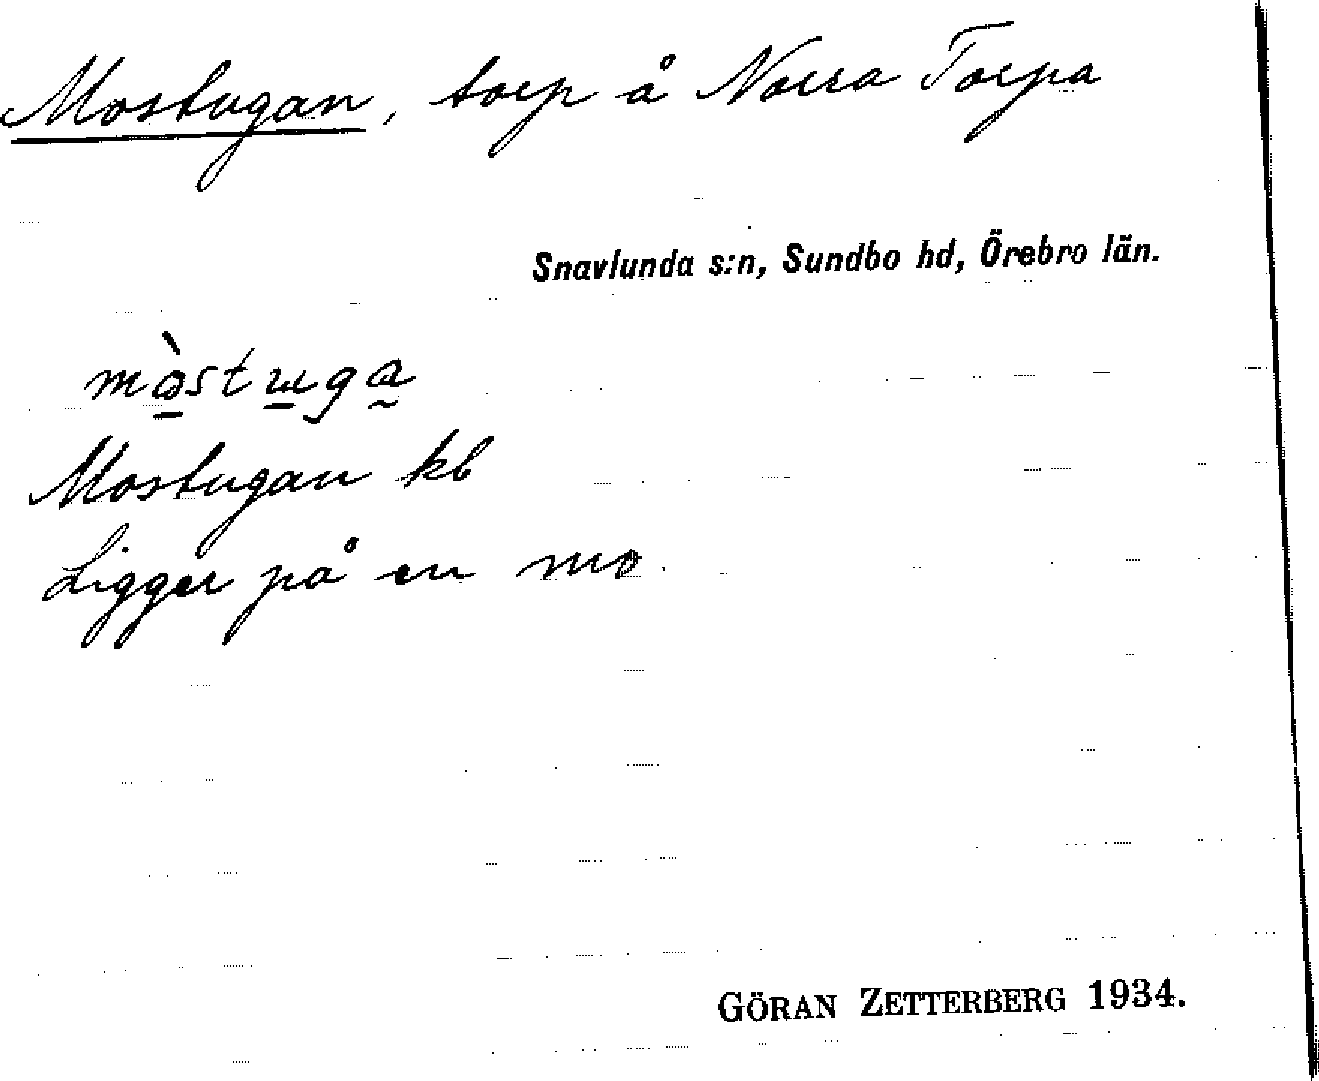 Mostugan, torp å Norra Torpa
Snavlunda s:n, Sundbo hd, Örebro län.
Mostugan kb
Ligger på en mo.
GÖRAN ZETTERBERG 1934.